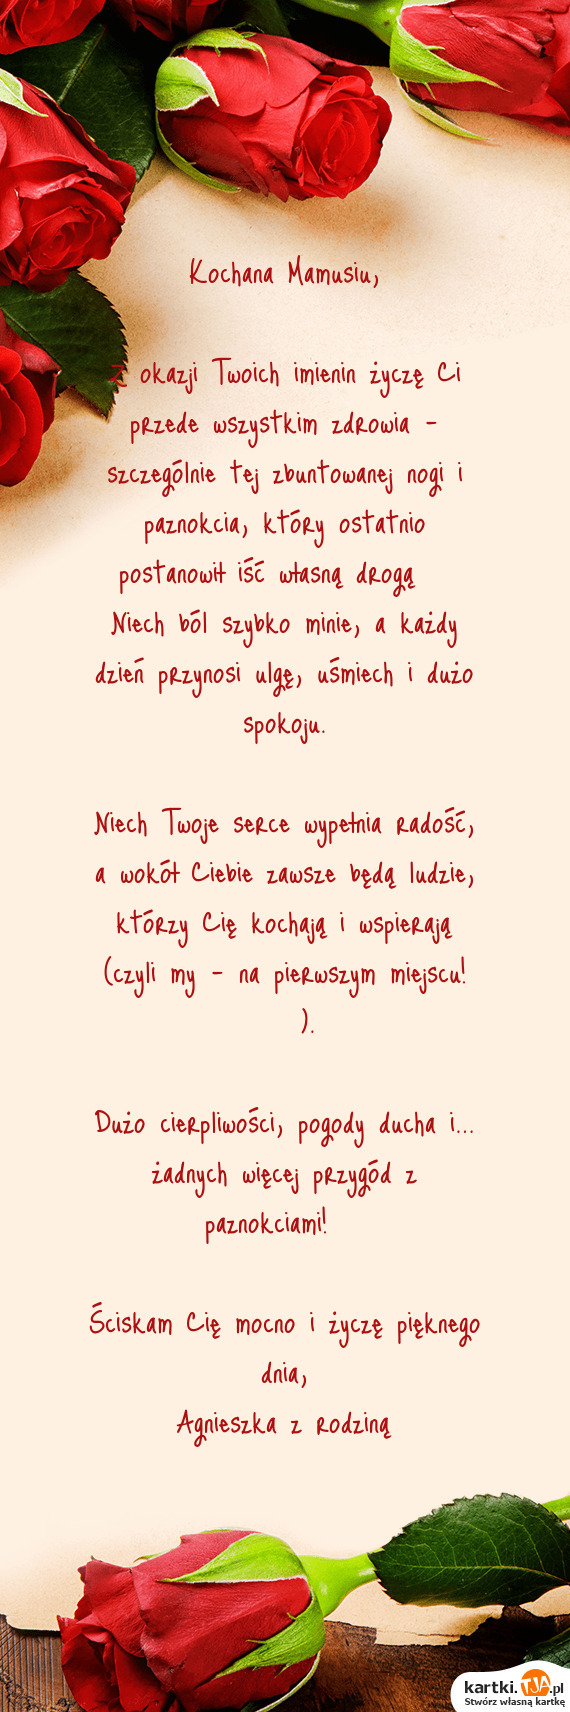 Kochana Mamusiu,
Z okazji Twoich imienin życzę Ci
przede wszystkim zdrowia -
szczególnie tej zbuntowanej nogi i
paznokcia, który ostatnio
postanowił iść własną drogą
Niech ból szybko minie, a każdy
dzień przynosi ulgę, uśmiech i dużo
spokoju.
Niech Twoje serce wypełnia radość,
a wokół Ciebie zawsze będą ludzie,
którzy Cię kochają i wspierają
(czyli my - na pierwszym miejscu!
).
Dużo cierpliwości, pogody ducha i...
żadnych więcej przygód z
paznokciami!
Ściskam Cię mocno i życzę pięknego
dnia,
Agnieszka z rodziną
kartki.TJA.pl
Stwórz własną kartkę